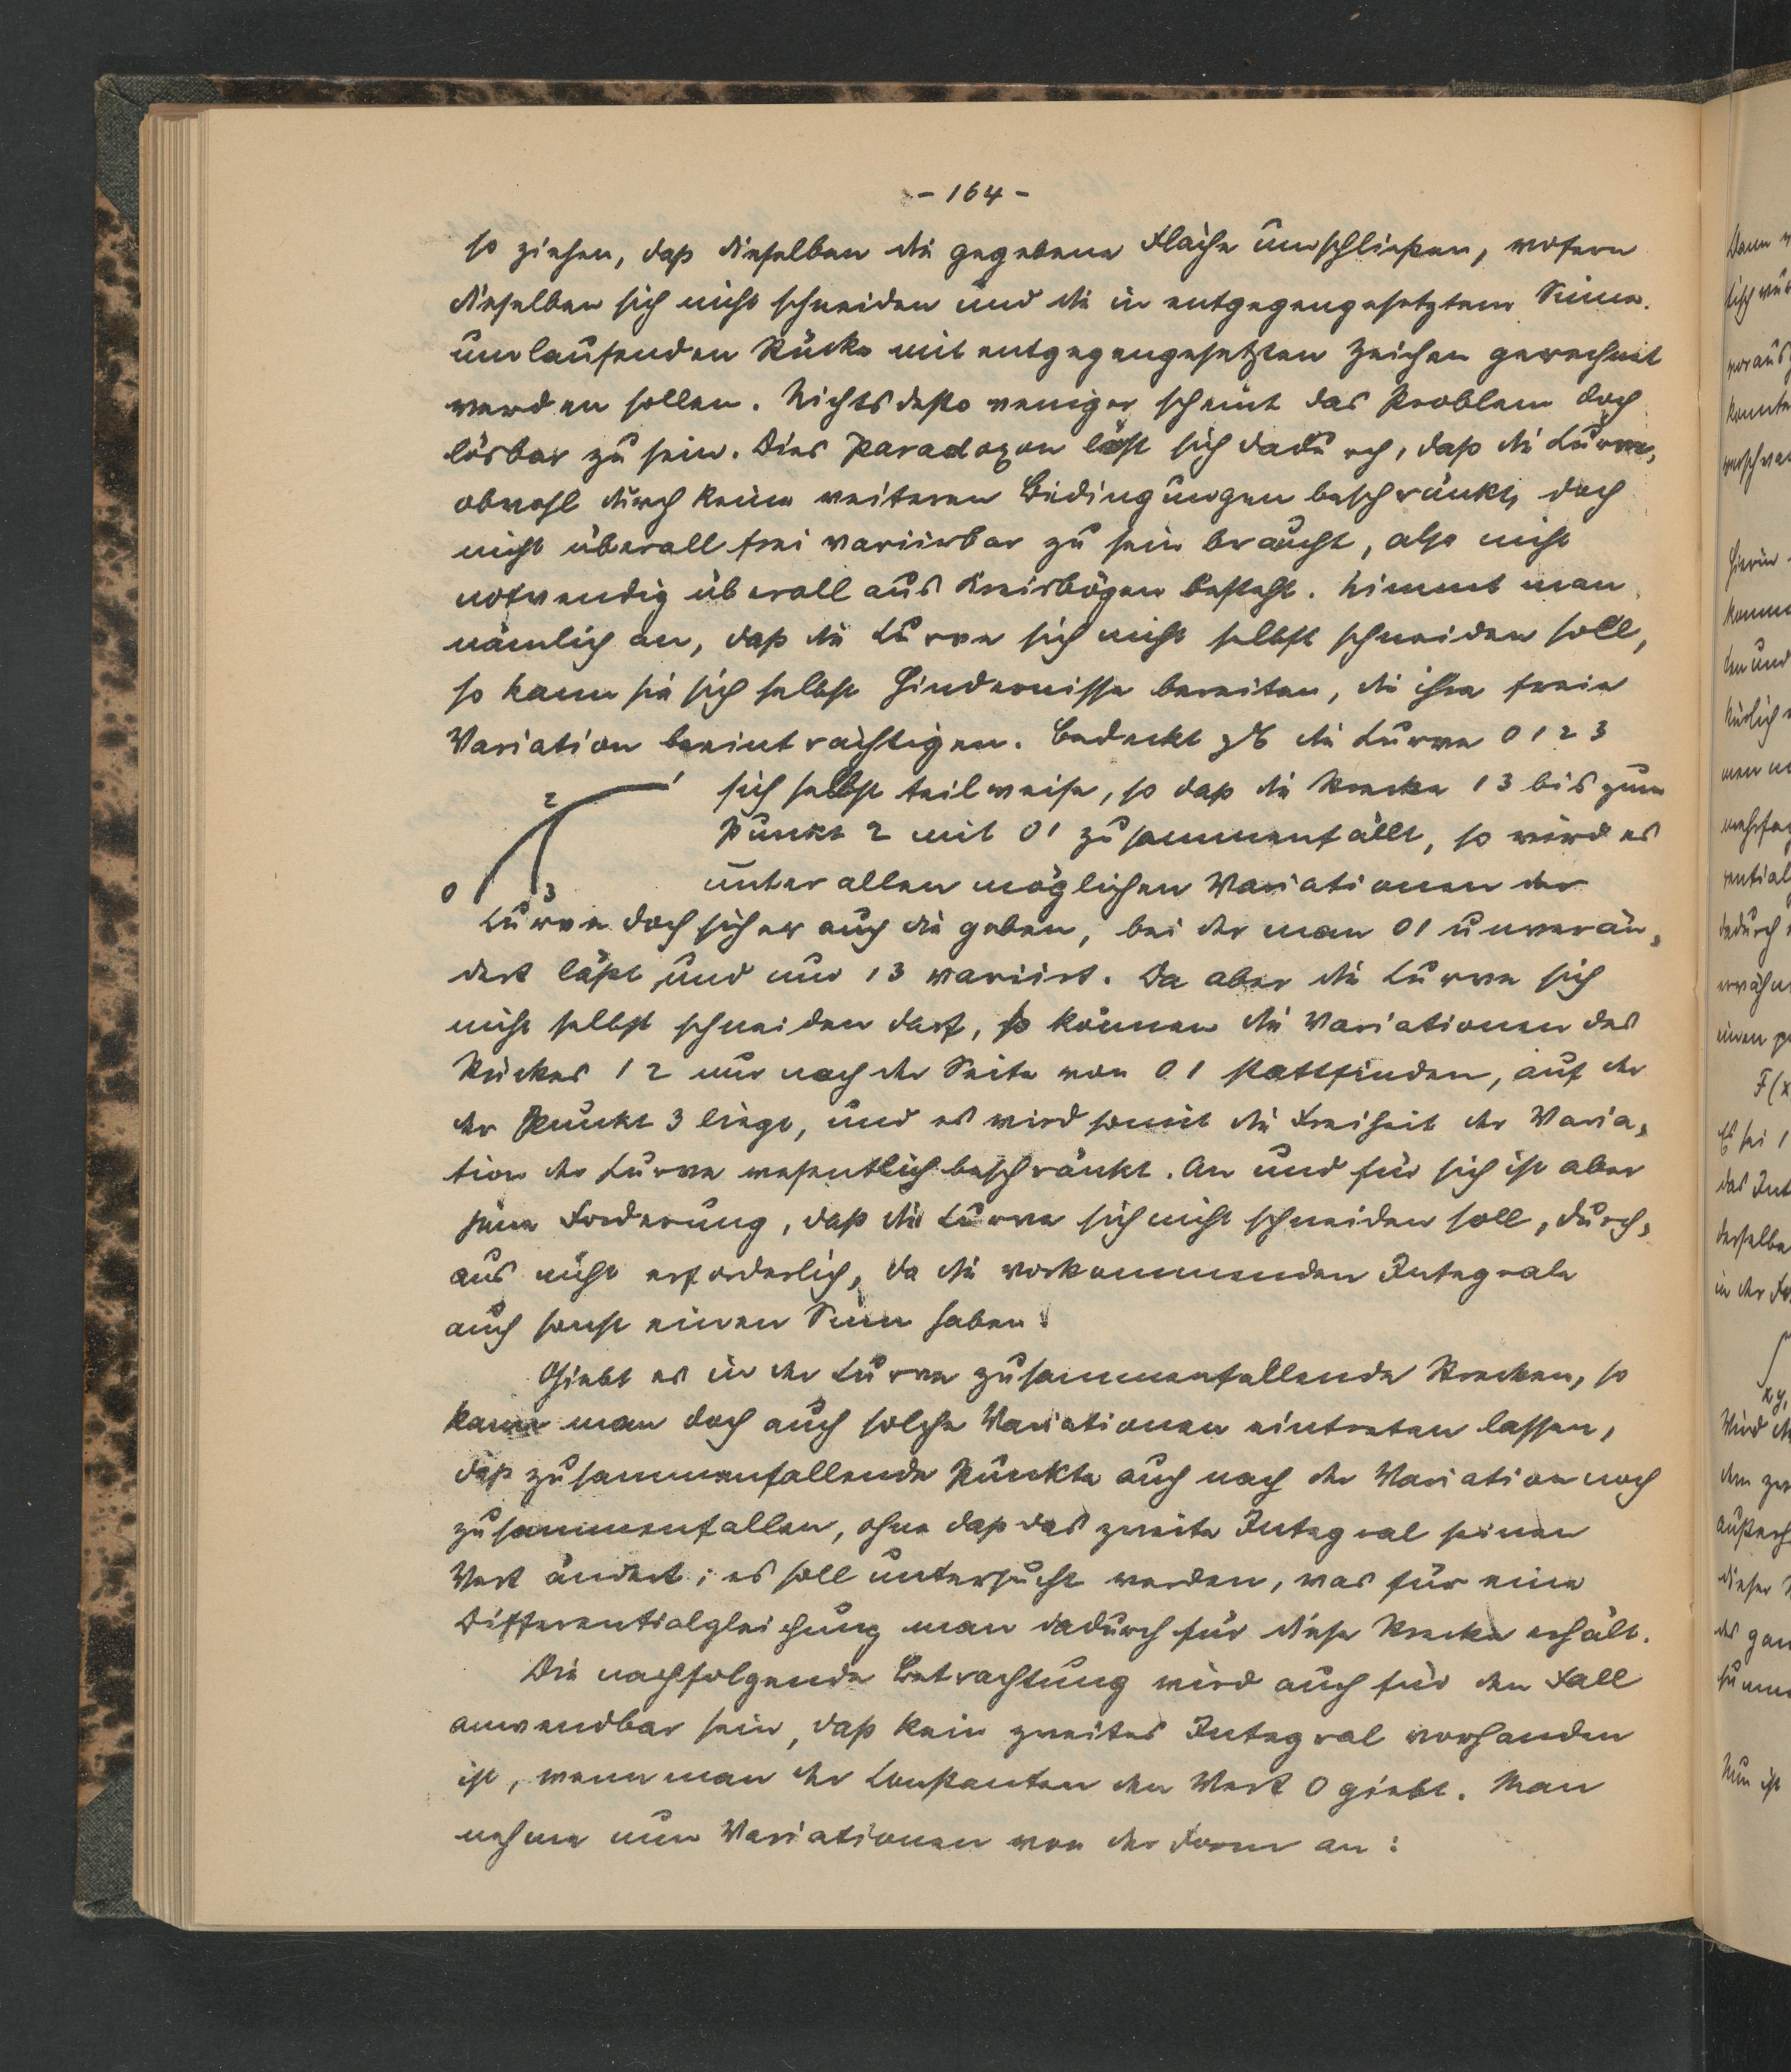 - 164 -
so ziehen, daß dieselben die gegebene Fläche umschließen, wofern
dieselben sich nicht schneiden und die in entgegengesetztem Sinne
umlaufenden Stücke mit entgegengesetzten Zeichen gerechnet
werden sollen. Nichtsdestoweniger scheint das Problem doch
lösbar zu sein. Dies Paradoxon löst sich dadurch, daß die Curve,
obwohl durch keine weiteren Bedingungen beschränkt, doch
nicht überall frei variirbar zu sein braucht, also nicht
notwendig überall aus Kreisbögen besteht. Nimmt man
nämlich an, daß die Curve sich nicht selbst schneiden soll,
so kann sie sich selbst Hindernisse bereiten, die ihre freie
Variation beeinträchtigen. Bedeckt zB die Curve 0 1 2 3
sich selbst teilweise, so daß die Strecke 1 3 bis zum
Punkt 2 mit 0 1 zusammenfällt, so wird es
unter allen möglichen Variationen der
0 1 2 3
Curve doch sicher auch die geben, bei der man 01 unverän-
dert läßt, und nur 13 variirt. Da aber die Curve sich
nicht selbst schneiden darf, so können die Variationen des
Stückes 1 2 nur nach der Seite von 0 1 stattfinden, auf der
der Punkt 3 liegt, und es wird somit die Freiheit der Varia-
tion der Curve wesentlich beschränkt. An und für sich ist aber
jene Forderung, daß die Curve sich nicht schneiden soll, durch-
aus nicht erforderlich, da die vorkommenden Integrale
auch sonst einen Sinn haben.
Giebt es in der Curve zusammenfallende Strecken, so
kann man doch auch solche Variationen eintreten lassen,
daß zusammenfallende Punkte auch nach der Variation noch
zusammenfallen, ohne daß das zweite Integral seinen
Wert ändert; es soll untersucht werden, was für eine
Differentialgleichung man dadurch für diese Strecke erhält.
Die nachfolgende Betrachtung wird auch für den Fall
anwendbar sein, daß kein zweites Integral vorhanden
ist, wenn man der Constanten den Wert 0 giebt. Man
nehme nun Variationen von der Form an: